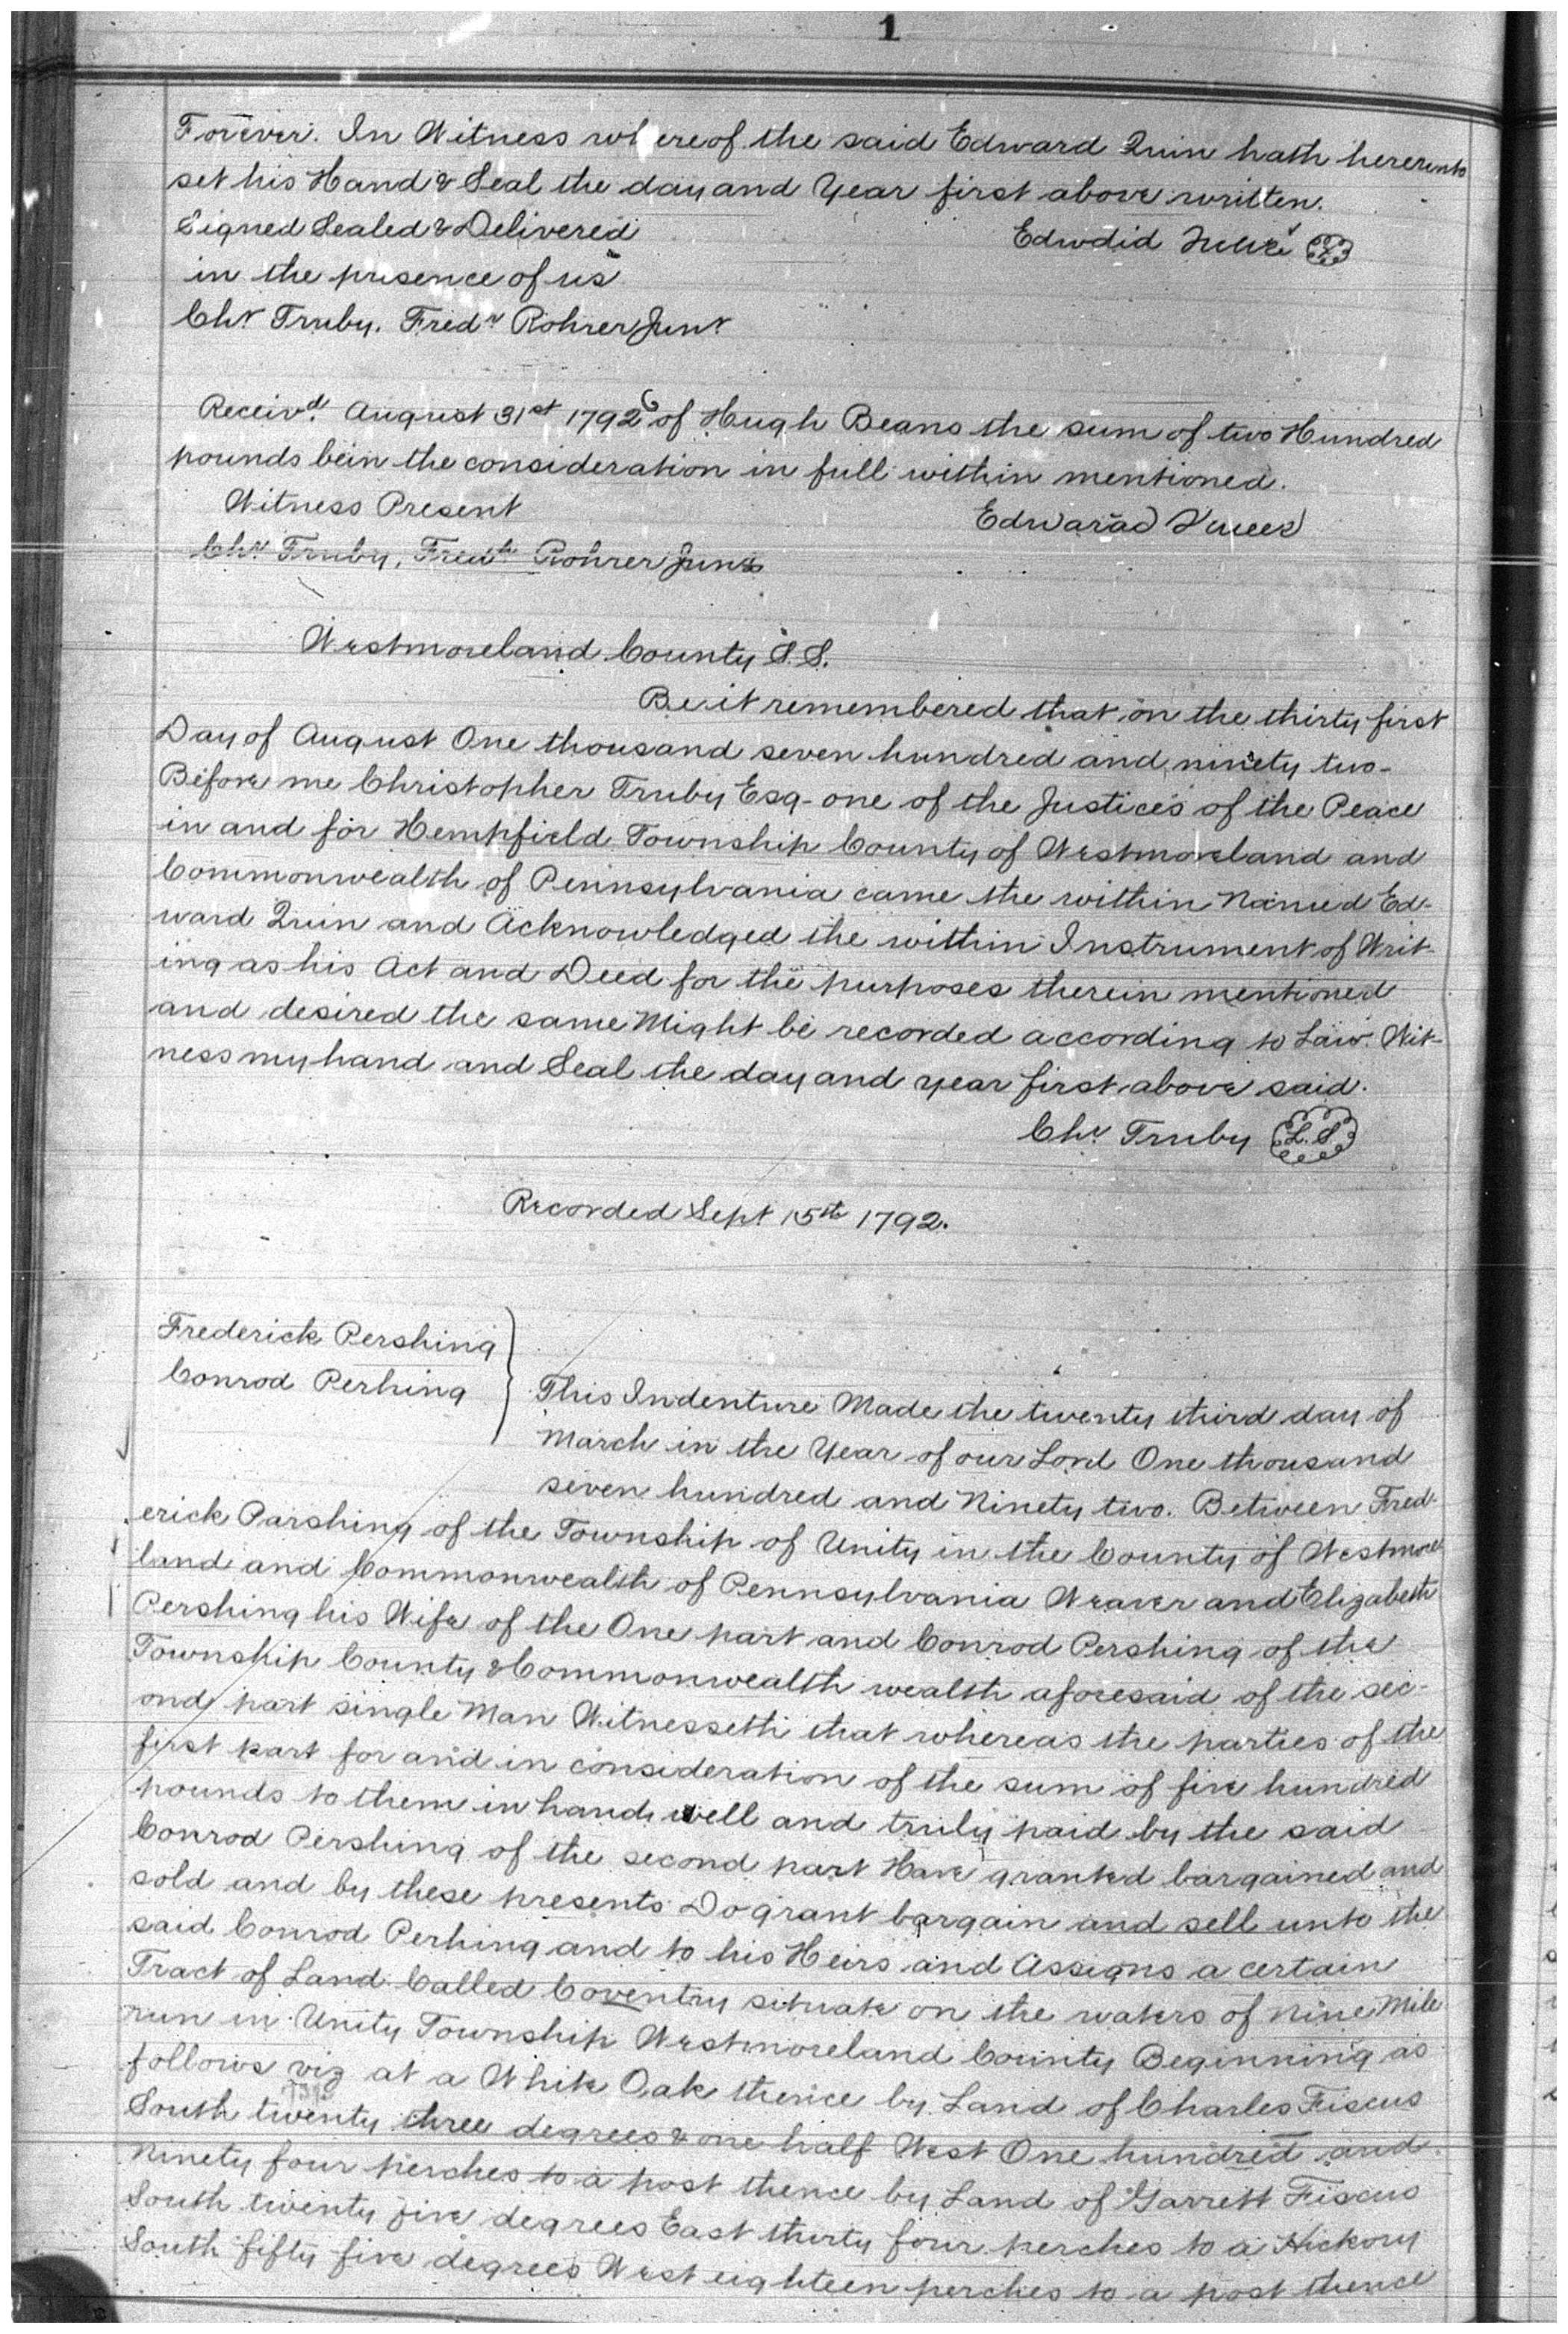 1
Forever. In Witness whereof the said Edward Quin hath hereunto
set his Hand & Seal the day and Year first above written.
Signed Sealed & Delivered
in the presence of us
Chr Truby. Fredr Rohrer Junr
Receivd August 31st 1792 of Hugh Beans the sum of two Hundred
pounds bein the consideration in full within mentioned.
Witness Present
Chr Truby, Rohrer Junr
Westmoreland County S.S.
Be it remembered that on the thirty first
Day of August One thousand seven hundred and ninety two-
Before me Christopher Truby Esq- one of the Justices of the Peace
in and for Hempfield Township County of Westmoreland and
Commonwealth of Pennsylvania came the within Named Ed-
ward Quin and Acknowledged the within Instrument of Writ-
ing as his Act and Deed for the purposes therein mentioned
and desired the same Might be recorded according to Law. Wit-
ness my hand and Seal the day and year first above said.
Chr Truby L.S
Recorded Sept 15th 1792.
Frederick Pershing
Conrod Perhing
This Indenture Made the twenty third day of
March in the Year of our Lord One thousand
seven hundred and Ninety two. Between Fred-
erick Parshing of the Township of Unity in the County of Westmore
land and Commonwealth of Pennsylvania Weaver and Elizabeth
Pershing his Wife of the One part and Conrod Pershing of the
Township County & Commonwealth wealth aforesaid of the sec-
ond part single Man Witnesseth that whereas the parties of the
first part for and in consideration of the sum of five hundred
pounds to them in hand well and truly paid by the said
Conrod Pershing of the second part Have granted bargained and
sold and by these presents Do grant bargain and sell unto the
said Conrod Perhing and to his Heirs and Assigns a certain
Tract of Land Called Coventry situate on the waters of Nine Mile
run in Unity Township Westmoreland County Beginning as
follows viz at a White Oak thence by Land of Charles Fiscus
South twenty three degrees & one half West One hundred and
Ninety four perches to a post thence by Land of Garrett Fiscus
South twenty five degrees East thirty four perches to a Hickory
South fifty five degrees West eighteen perches to a post thence